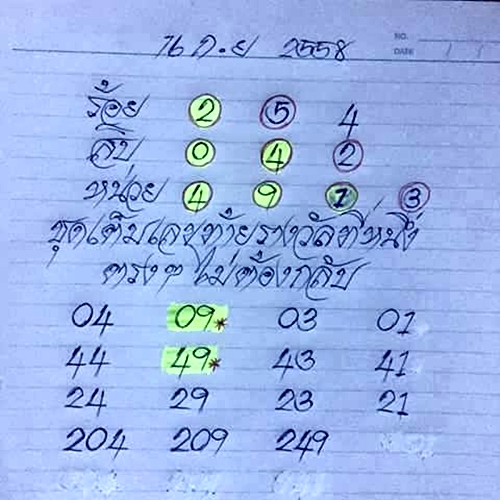 NO.
16 ก.ย 2558
DATE
ร้อย 2 5 4
สิบ 0 4 2
หน่วย 4 9 1 3
ชุดเต็มเลขท้ายรางวัลที่หนึ่ง
ตรงๆ ไม่ต้องกลับ
04 09* 03 01
44 49* 43 41
24 29 23 21
204 209 249